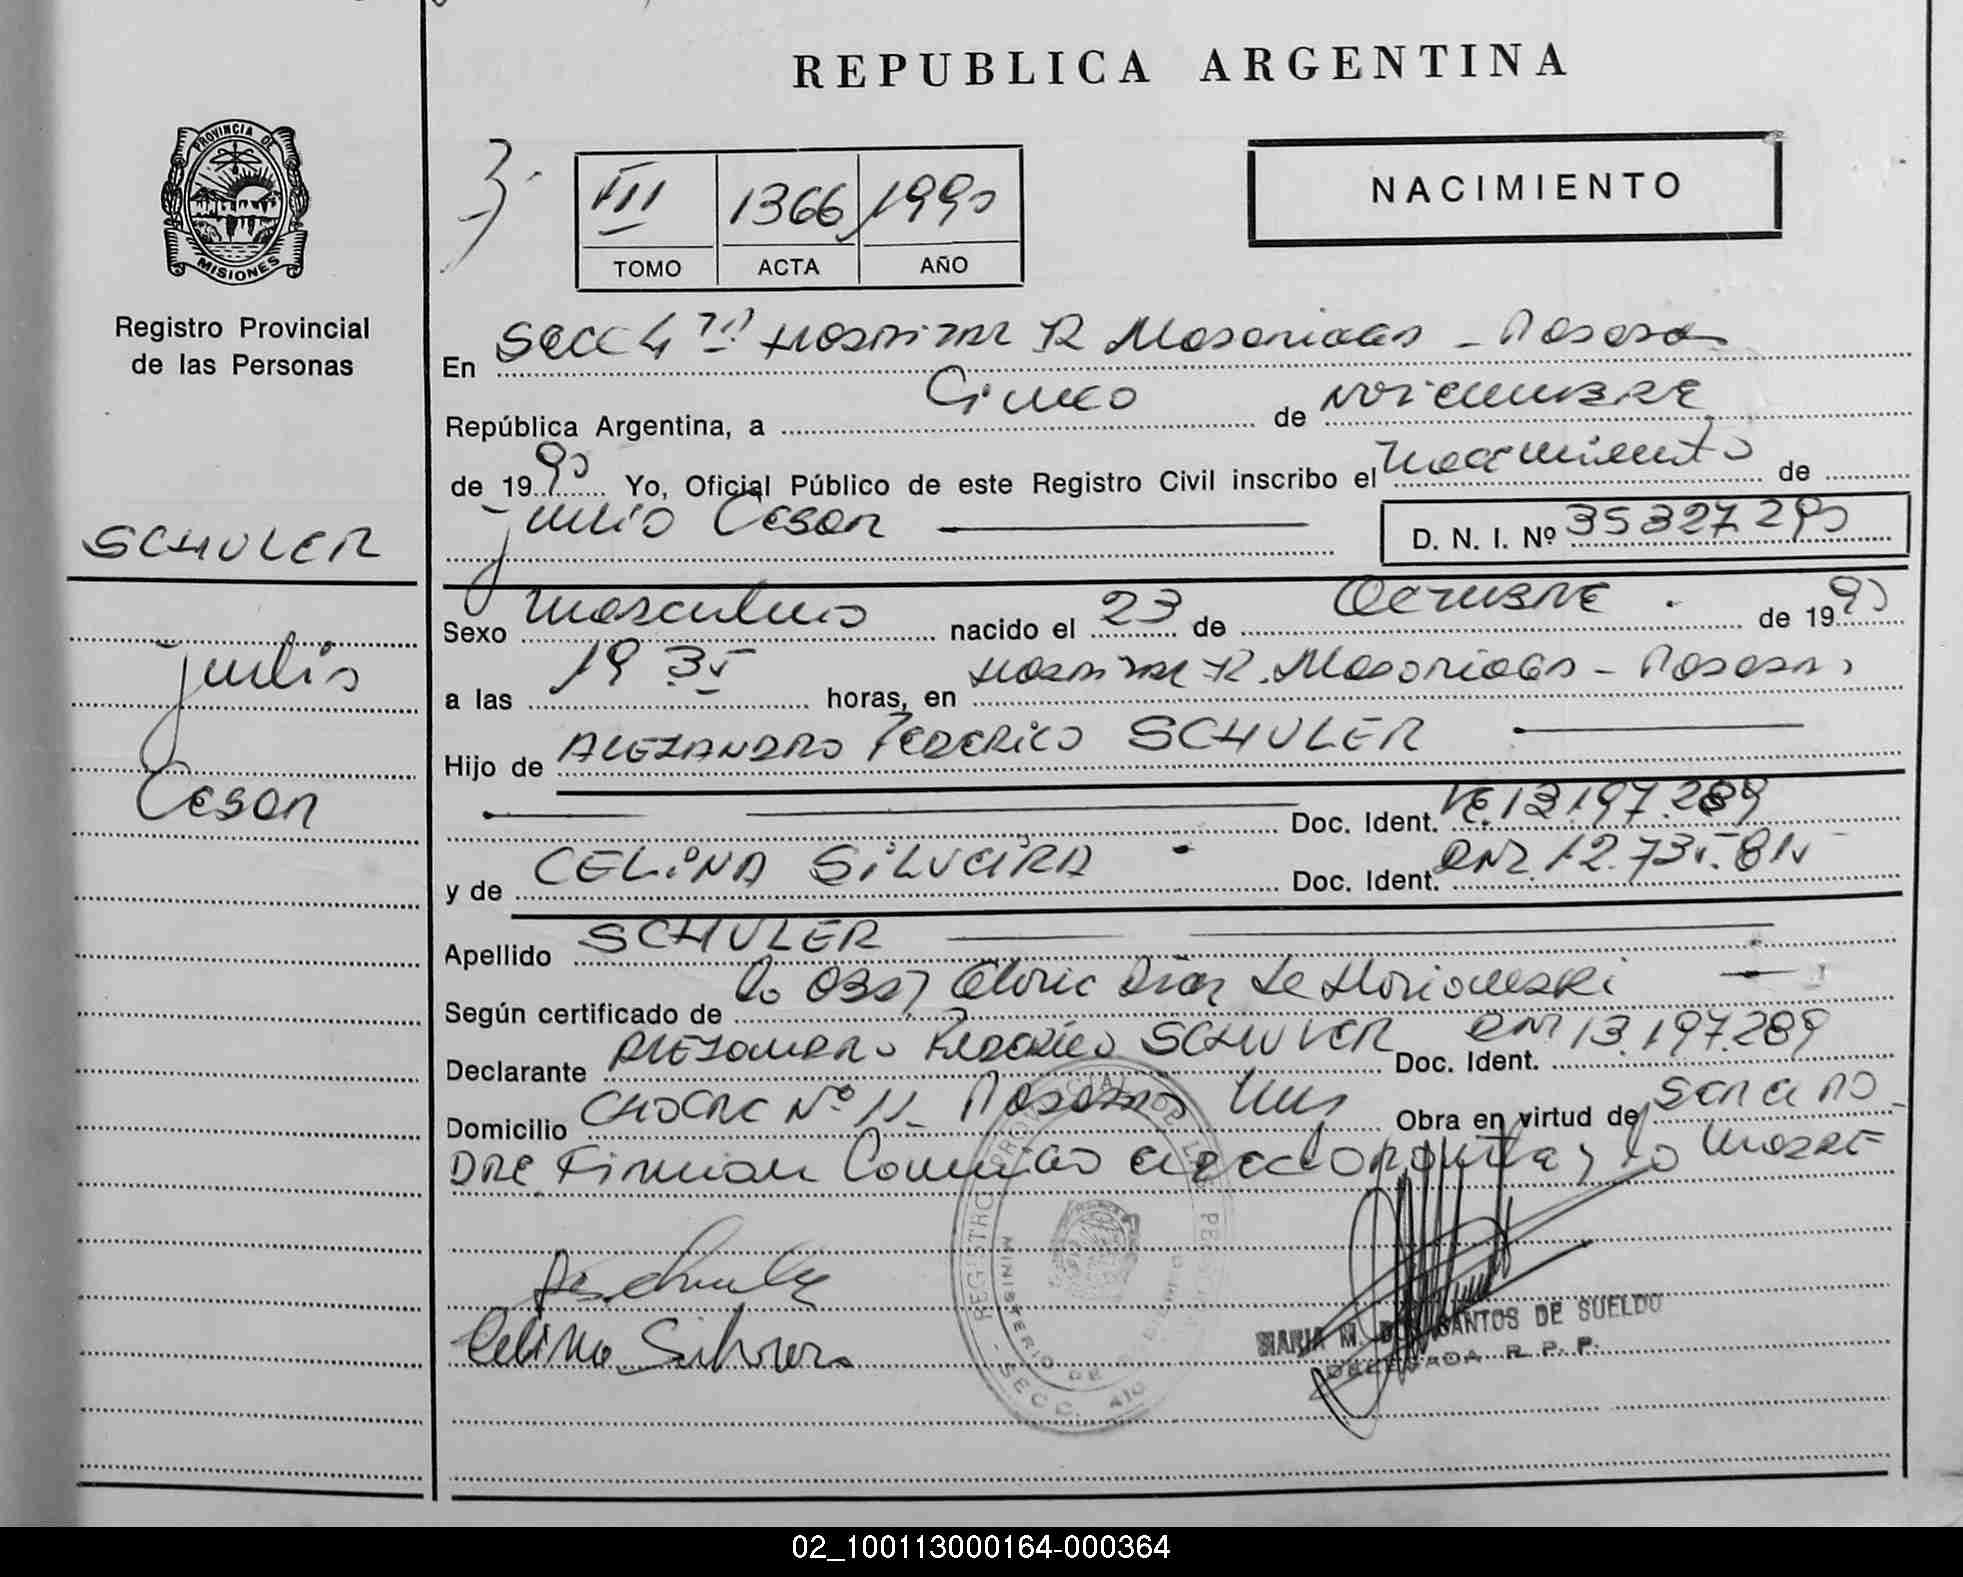 REPUBLICA ARGENTINA
PROVINCIA DE
MISIONES
Registro Provincial
de las Personas
NACIMIENTO
III 1366 1990
TOMO ACTA AÑO
En Secc 4ta Hospital R Madariaga - Posadas
República Argentina, a Cinco de noviembre
de 1990 Yo, Oficial Público de este Registro Civil inscribo el nacimiento de
Julio Cesar D. N. I. Nº 35327290
SCHULER
Julio
Cesar
Sexo masculino nacido el 23 de Octubre de 1990
a las 19 35 horas, en Hospital R. Madariaga - Posadas
Hijo de ALEJANDRO FEDERICO SCHULER
Doc. Ident. 13.197.289
y de CELINA SILVEIRA Doc. Ident. DNI 12.735.815
Apellido SCHULER
Según certificado de la Obst Díaz de
Declarante ALEJANDRO FEDERICO SCHULER Doc. Ident. DNI 13.197.289
Domicilio CHACRA Nº 11 Posadas Mnes Obra en virtud de ser el PA
DRE. Firman Conmigo el declarante y la madre
Celina Silveira
REGISTRO PROVINCIAL DE LAS PERSONAS
MINISTERIO DE GOBIERNO
SECC. 4ta
MARIA M. DOS SANTOS DE SUELDO
DELEGADA R. P. P.
02_100113000164-000364